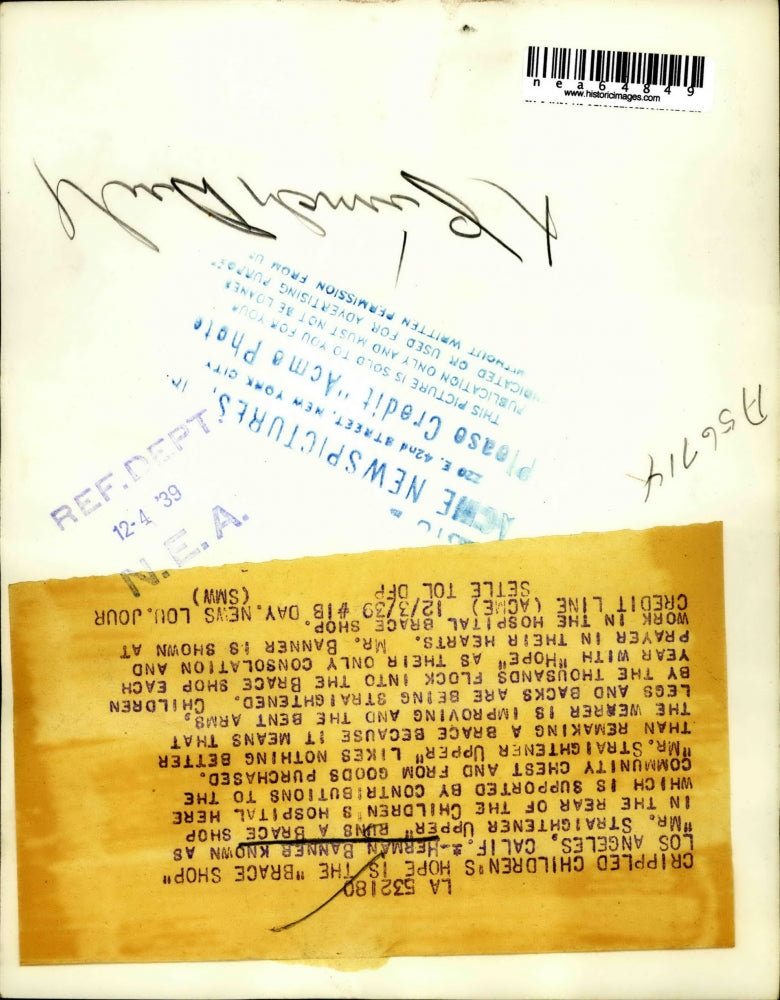 nea64849
www.historicimages.com
A56714
ACME NEWSPICTURES,
220 E. 42nd STREET, NEW YORK CITY
Please Credit "Acme Photo
THIS PICTURE IS SOLD TO YOU FOR YOUR
PUBLICATION ONLY AND MUST NOT BE LOANED
OR USED FOR ADVERTISING
WITHOUT WRITTEN PERMISSION FROM US
REF. DEPT.
12-4 '39
N.E.A.
LA 532180
CRIPPLED CHILDREN'S HOPE IS THE "BRACE SHOP"
LOS ANGELES, CALIF.--HERMAN BANNER KNOWN AS
"MR. STRAIGHTENER UPPER" RUNS A BRACE SHOP
IN THE REAR OF THE CHILDREN'S HOSPITAL HERE
WHICH IS SUPPORTED BY CONTRIBUTIONS TO THE
COMMUNITY CHEST AND FROM GOODS PURCHASED.
"MR. STRAIGHTENER UPPER" LIKES NOTHING BETTER
THAN REMAKING A BRACE BECAUSE IT MEANS THAT
THE WEARER IS IMPROVING AND THE BENT ARMS,
LEGS AND BACKS ARE BEING STRAIGHTENED. CHILDREN
BY THE THOUSANDS FLOCK INTO THE BRACE SHOP EACH
YEAR WITH "HOPE" AS THEIR ONLY CONSOLATION AND
PRAYER IN THEIR HEARTS. MR. BANNER IS SHOWN AT
WORK IN THE HOSPITAL BRACE SHOP.
CREDIT LINE (ACME) 12/3/39 #1B DAY.NEWS LOU.JOUR
SETTLE TOL DFP (SMW)